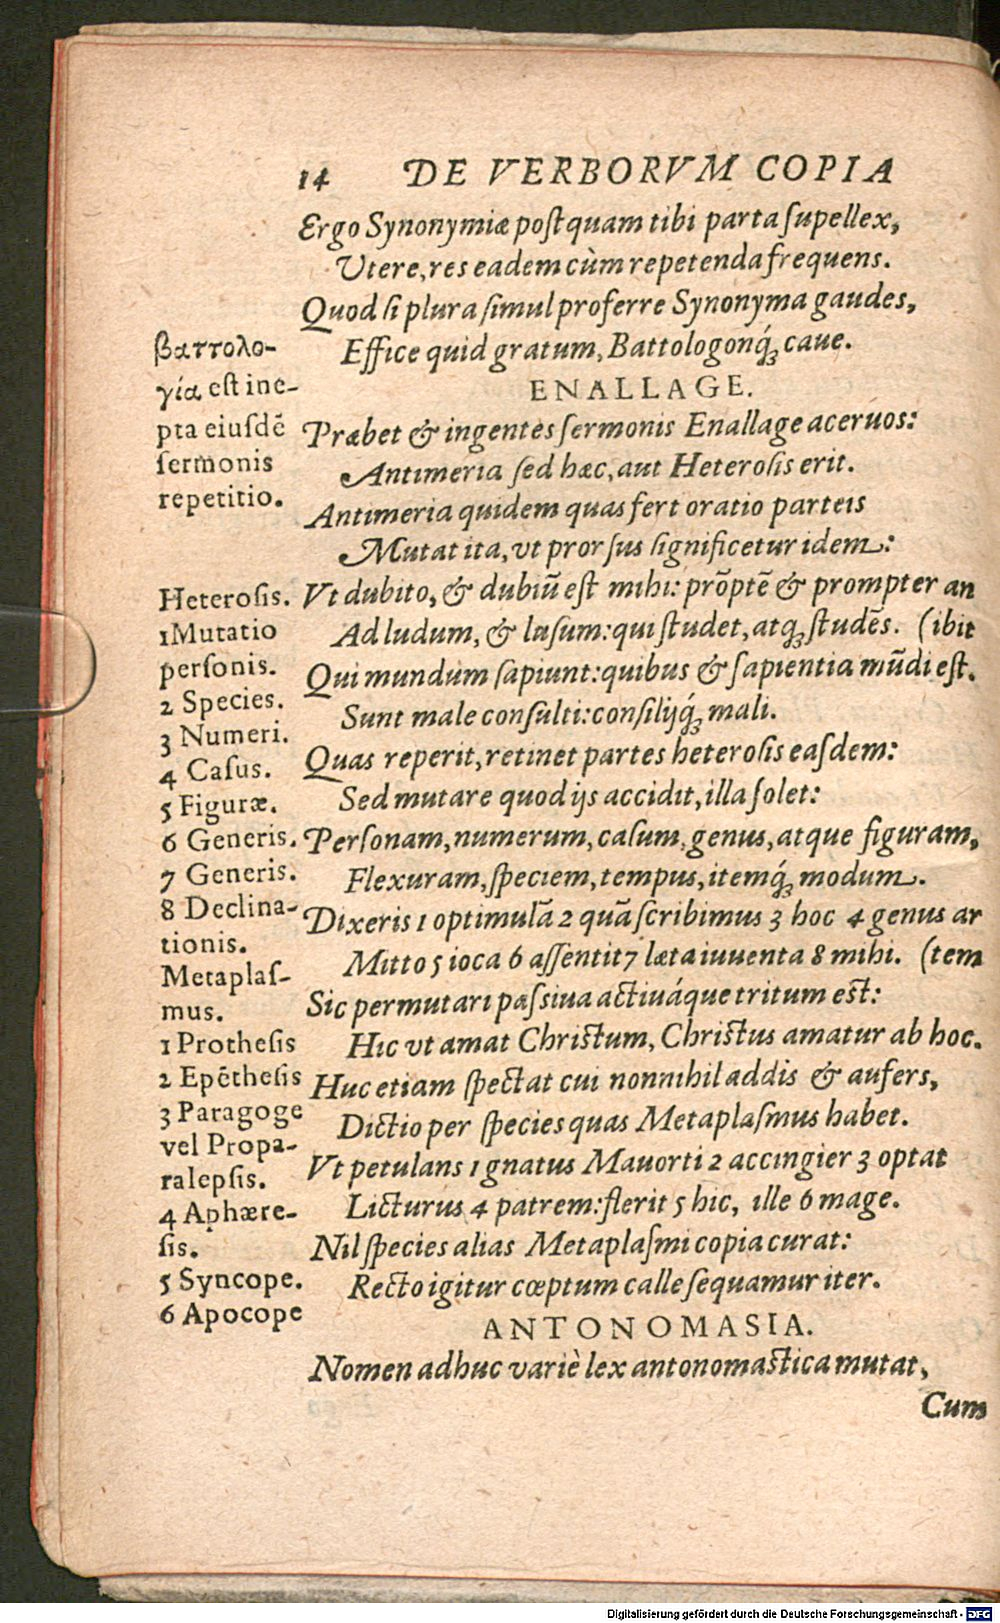 14 DE VERBORVM COPIA
Ergo Synonymiæ postquam tibi parta supellex,
Vtere, res eadem cùm repetenda frequens.
Quod si plura simul proferre Synonyma gaudes,
Effice quid gratum, Battologonq́; caue.
ENALLAGE.
Præbet & ingentes sermonis Enallage aceruos:
Antimeria sed hæc, aut Heterosis erit.
Antimeria quidem quas fert oratio parteis
Mutat ita, vt prorsus significetur idem:
Vt dubito, & dubiū est mihi: prōptē & prompter an
Ad ludum, & lusum: qui studet, atq; studēs. (ibit
Qui mundum sapiunt: quibus & sapientia mūdi est.
Sunt male consulti: consilijq́; mali.
Quas reperit, retinet partes heterosis easdem:
Sed mutare quod ijs accidit, illa solet:
Personam, numerum, casum, genus, atque figuram,
Flexuram, speciem, tempus, itemq́; modum.
Dixeris 1 optimulā 2 quā scribimus 3 hoc 4 genus ar
Mitto 5 ioca 6 assentit 7 læta iuuenta 8 mihi. (tem
Sic permutari passiua actiuáque tritum est:
Hic vt amat Christum, Christus amatur ab hoc.
Huc etiam spectat cui nonnihil addis & aufers,
Dictio per species quas Metaplasmus habet.
Vt petulans 1 gnatus Mauorti 2 accingier 3 optat
Licturus 4 patrem: flerit 5 hic, ille 6 mage.
Nil species alias Metaplasmi copia curat:
Recto igitur cœptum calle sequamur iter.
ANTONOMASIA.
Nomen adhuc variè lex antonomastica mutat,
Cum
βαττολο-
γία est ine-
pta eiusdē
sermonis
repetitio.
Heterosis.
1 Mutatio
personis.
2 Species.
3 Numeri.
4 Casus.
5 Figuræ.
6 Generis.
7 Generis.
8 Declina-
tionis.
Metaplas-
mus.
1 Prothesis
2 Epēthesis
3 Paragoge
vel Propa-
ralepsis.
4 Aphære-
sis.
5 Syncope.
6 Apocope
Digitalisierung gefördert durch die Deutsche Forschungsgemeinschaft - DFG